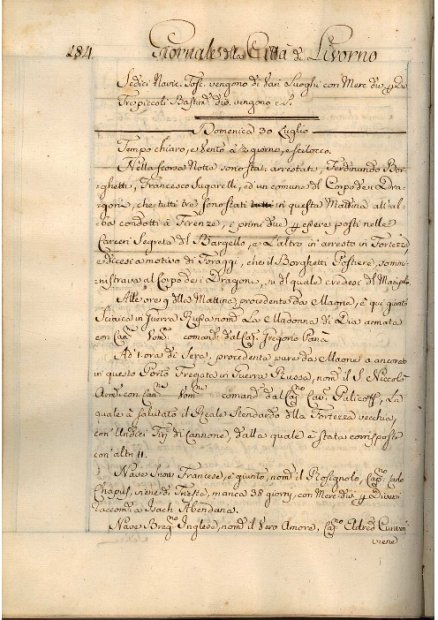 184. Giornale della Città di Livorno
Sedici Navic. Tosc. vengono di vari Luoghi con Merc. div. e
Tre piccoli Bastim. div. vengono
Domenica 30 Luglio
Tempo chiaro, e Vento a 2 giorno, e Scilocco.
Nella scorsa Notte sono sta: arrestati, Ferdinando Bor,
ghetti, Francesco Sugarelli, ed un comune del Corpo de Dra,
goni, che tutti tre sono stati in questa Mattina all'al,
ba condotti a Firenze, e primi due p essere posti nelle
Carceri Segrete del Bargello, e L'altro in arresto in Fortezza
e dicesi a motivo di Foraggi, che il Borghetti Postiere, sommi,
nistrava al Corpo dei Dragoni, sul quale credesi del
Alle ore 9 della Mattina, procedente da Maone, è qui giunto
Sciaicca in Guerra Russa nom. La Madonna di Idia armata
con Can. Uom. comand. dal Cap. Gregorio
Ad' ora di Sera, procedente pure da Maone a ancorato
in questo Porto Fregata in Guerra Russa, nom. il S. Niccolò
Arm. con Can. Uom. comand. dal Cap. Cav. Palicoff, La
quale à salutato il Reale Stendardo della Fortezza vecchia,
con Undici Tiri di Cannone, dalla quale è stata corrisposta
con altri 11.
Nave Snow Francese, è giunto, nom. il Rosignolo, Cap. Carlo
Chapus, viene di Trieste, manca 38 giorni, con Merc. div. p diversi
raccom. a Isach Abendana.
Nave Brig. Inglese, nom. il Vero Amore, Cap.
viene